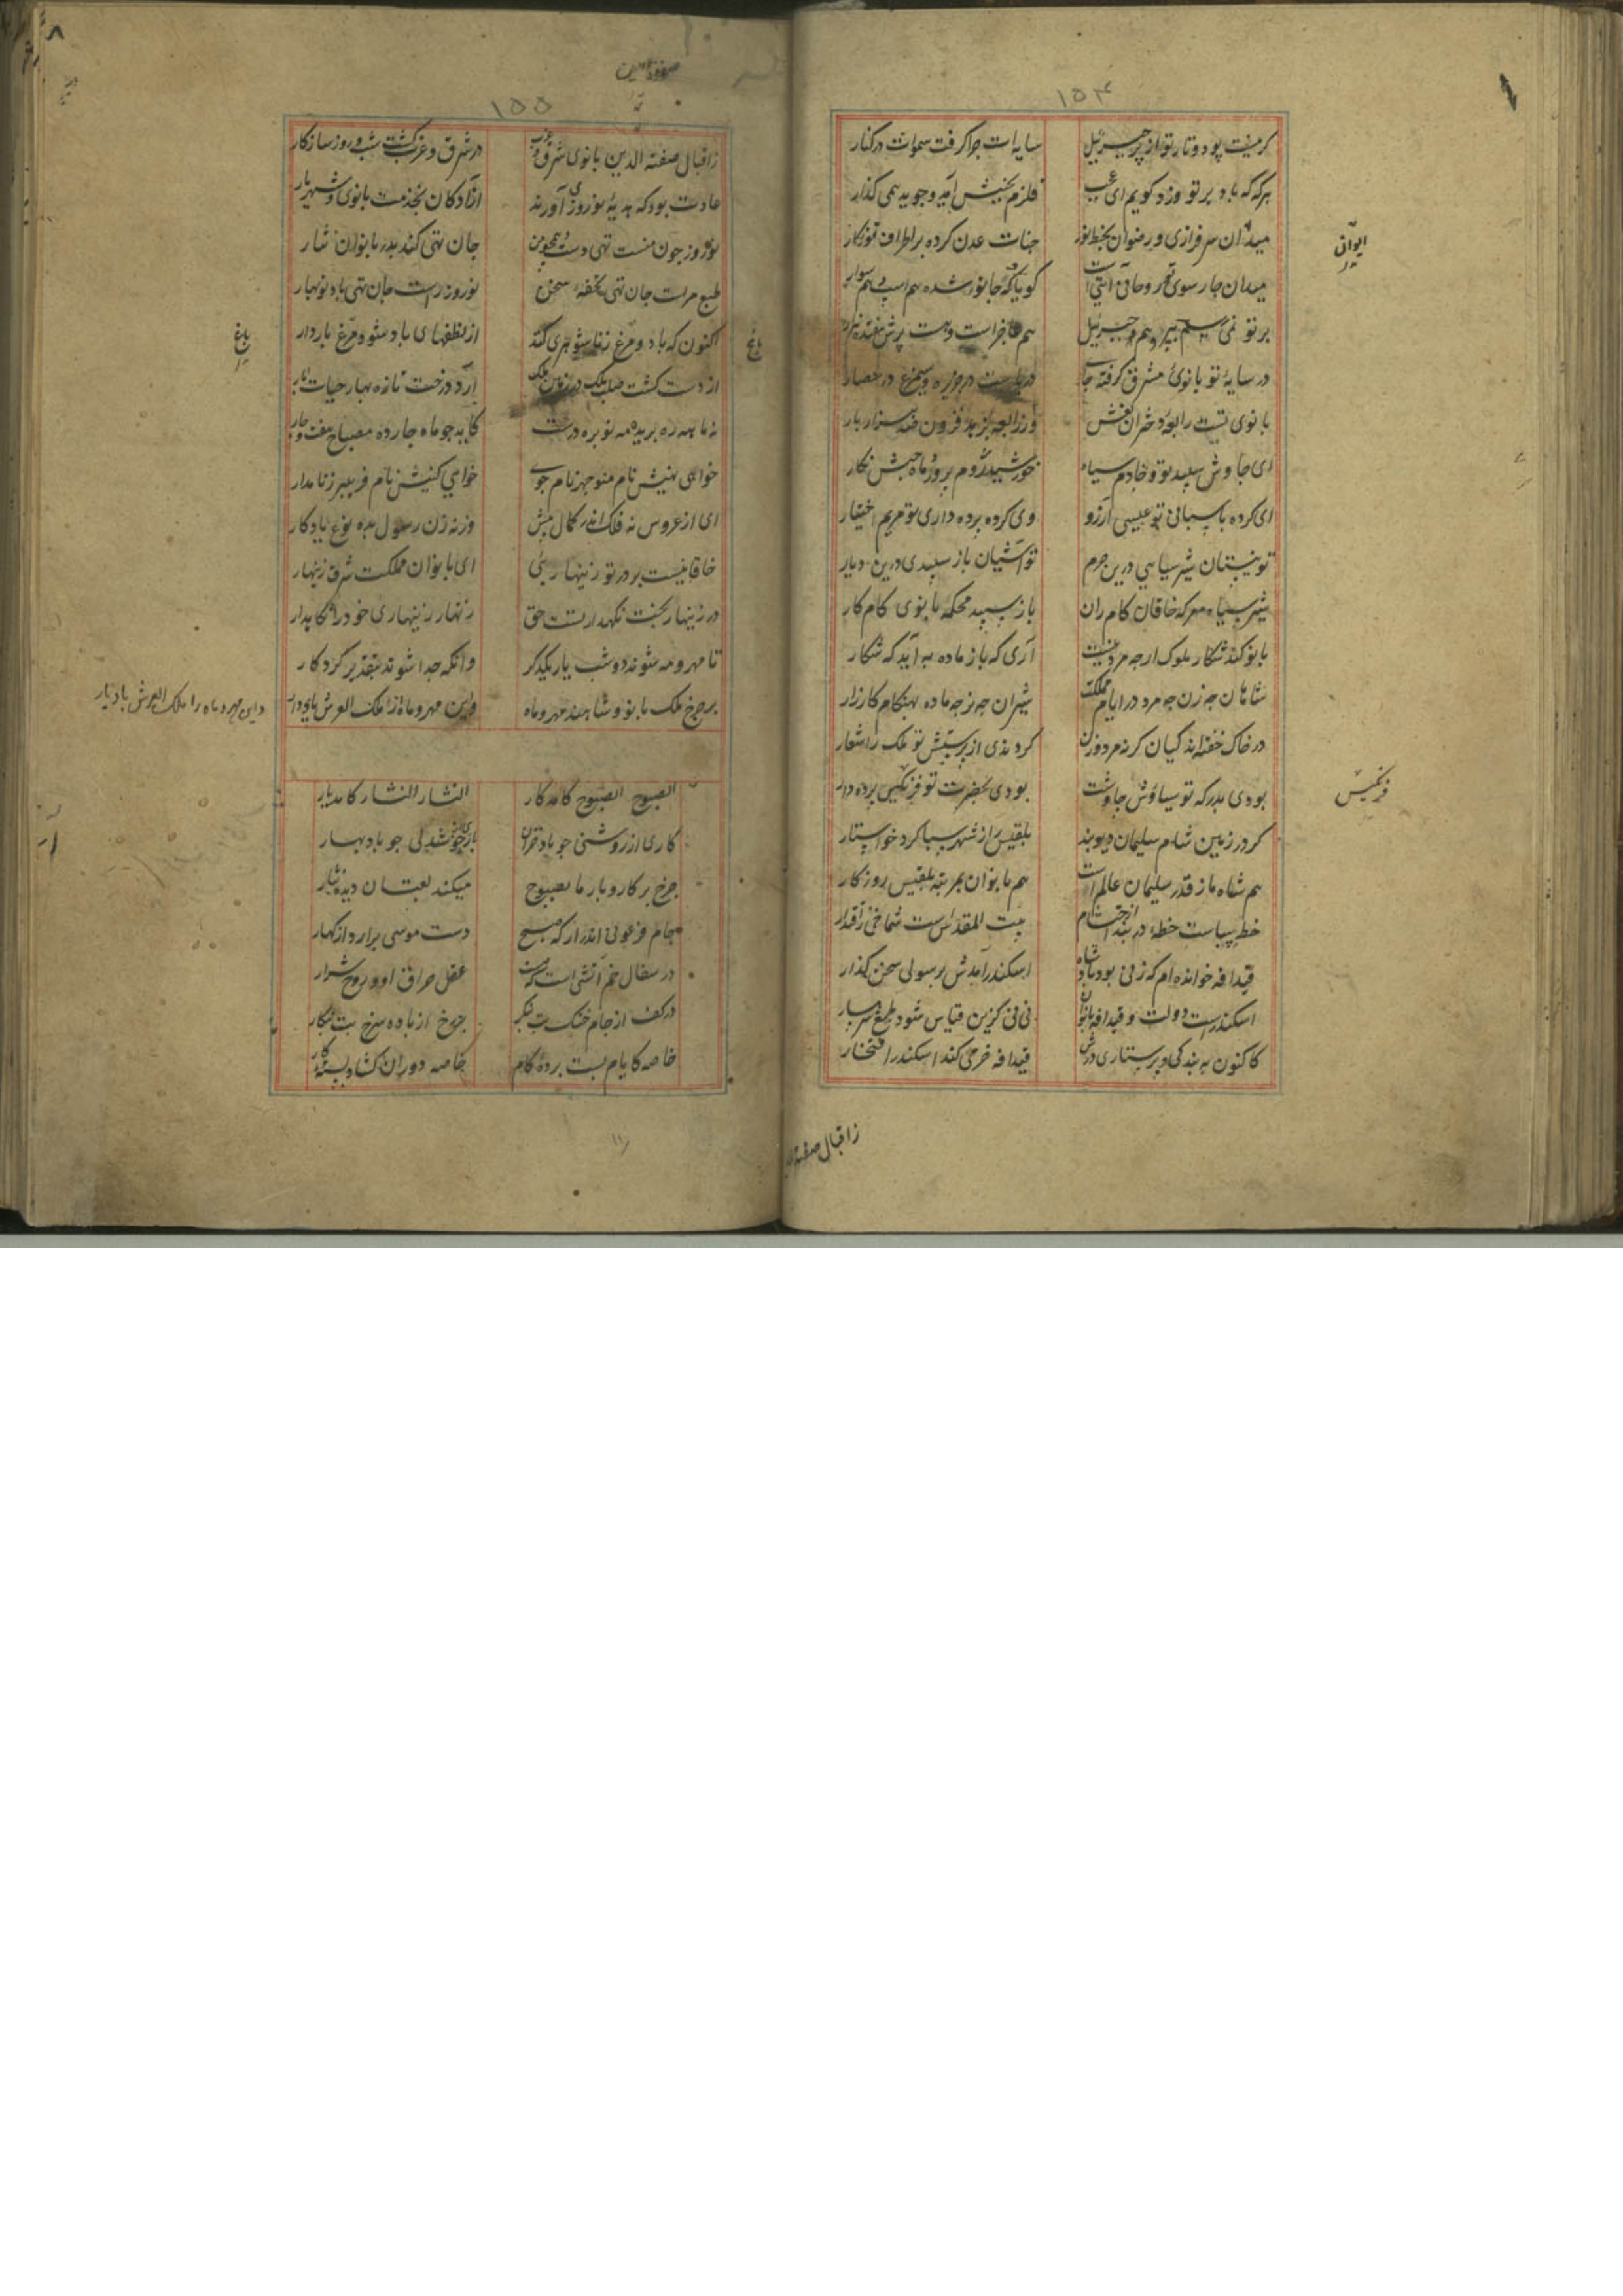 ۱۵۴
کرمیت پود و تار تو از پر جبرئیل
سایه‌ات جوا کرفت سموات در کنار
هر که که باد بر تو وزد کویم ای عجب
قلزم بجنبش آمد و جوید همی کذار
میدان سرفرازی و رضوان بخط نور
جنات عدن کرده بر اطراف تو نکار
میدان چار سوی تو روحانی آیتی است
کویا که جانور شده هم اسب و هم سوار
بر تو نمی هم جبرئیل
هم فاخرا ست و هست پرش
در سایه تو بانوی مشرق کرفته جای
دریاست در جزیره و سیمرغ در حصار
بانوی تست رابعه دختران نعش
وز رابعه بزهد فزون صد هزار بار
ای جاوش سپید تو و خادم سیاه
خورشید روم پرور و ماه حبش نکار
ای کرده پاسبانی تو عیسی آرزو
وی کرده پرده داری تو مریم اختیار
تو نیستان شیر سیاهی درین حرم
تو آشیان باز سپیدی درین دیار
شیر سیاه معرکه خاقان کام ران
باز سپید محکه بانوی کام کار
بانو کند شکار ملوک ارچه مرد نیست
آری که باز ماده به آید که شکار
شاهان چه زن چه مرد در ایام مملکت
شیران چه نر چه ماده بهنکام کارزار
در خاک خفته‌اند کیان کرنه مرد و زن
کردندی از پرستش تو ملک را شعار
بودی بدرکه تو سیاوش جاوشت
بودی بحضرت تو فرنکیس پرده دار
کر در زمین شام سلیمان دیو بند
بلقیس از شهر سبا کرد خواستار
هم شاه ما ز قدر سلیمان عالم است
هم بانوان بمرتبه بلقیس روزکار
خط سپاست خطه دربند از احتشام
بیت المقدس است شماخی ز اقتدار
قیدافه خوانده ام که زنی بود پادشاه
اسکندر آمدش برسولی سخن کذار
اسکندرست دولت و قیدافه بانوان
نی نی کزین قیاس شود طبع شرمسار
کاکنون به بندکی و پرستاری درش
قیدافه فرخی کند اسکندر افتخار
ایوانی
فرنکیس
زاقبال صفة
۱۵۵
صفوة الدین
زاقبال صفته الدین بانوی شرق و غرب
در شرق و غرب کشت شب و روز سازکار
عادت بود که هدیه نوروزی آورند
آزادکان بخدمت بانوی و شهریار
نوروز چون منست تهی دست و همچو من
جان تهی کند بدر بانوان نثار
طبع مراست جان تهی تحفه سخن
نوروز راست جان تهی باد نوبهار
اکنون که باد و مرغ زناشوهری کند
از نطفهای باد شود مرغ باردار
از دست کشت صلب ملک در زمان ملک
آرد درخت تازه بهار حیات بار
نه ماهه ره بریده مه نو بره درست
کاید چو ماه چارده مصباح هفت و چار
خواهی نهیش نام منوچهر نام جوی
خواهی کنیش نام فریبرز نامدار
ای از عروس نه فلک اندر کمال پیش
وز نه زن رسول بده نوع یادکار
خاقانیست بر در تو زینهارئی
ای بانوان مملکت شرق زینهار
در زینهار بخت نکهدارتست حق
زنهار زینهاری خود را نکاهدار
تا مهر و مه شوند دو شب یار یکدکر
وانکه جدا شوند بتقدیر کردکار
بر چرخ ملک بانو و شاهند مهر و ماه
واین مهر و ماه از ملک العرش پای دار
الصبوح الصبوح کامد کار
النثار النثار کامد یار
کاری از روشنی چو باد خزان
یاری از خوشدلی چو باد بهار
چرخ بر کار و بار ما بصبوح
میکند لعبتان دیده نثار
جام فرعونی اندر ار که صبح
دست موسی برارد از کهسار
در سفال خم آتشی است که هست
عقل حراق او و روح شرار
در کف از جام خنک بت بنکر
چرخ از باده سرخ بت بنکار
خاصه کایام بست پرده کام
خاصه دوران کشاد بسته کار
باغ
باغ
و این مهر و ماه را ملک العرش باد یار